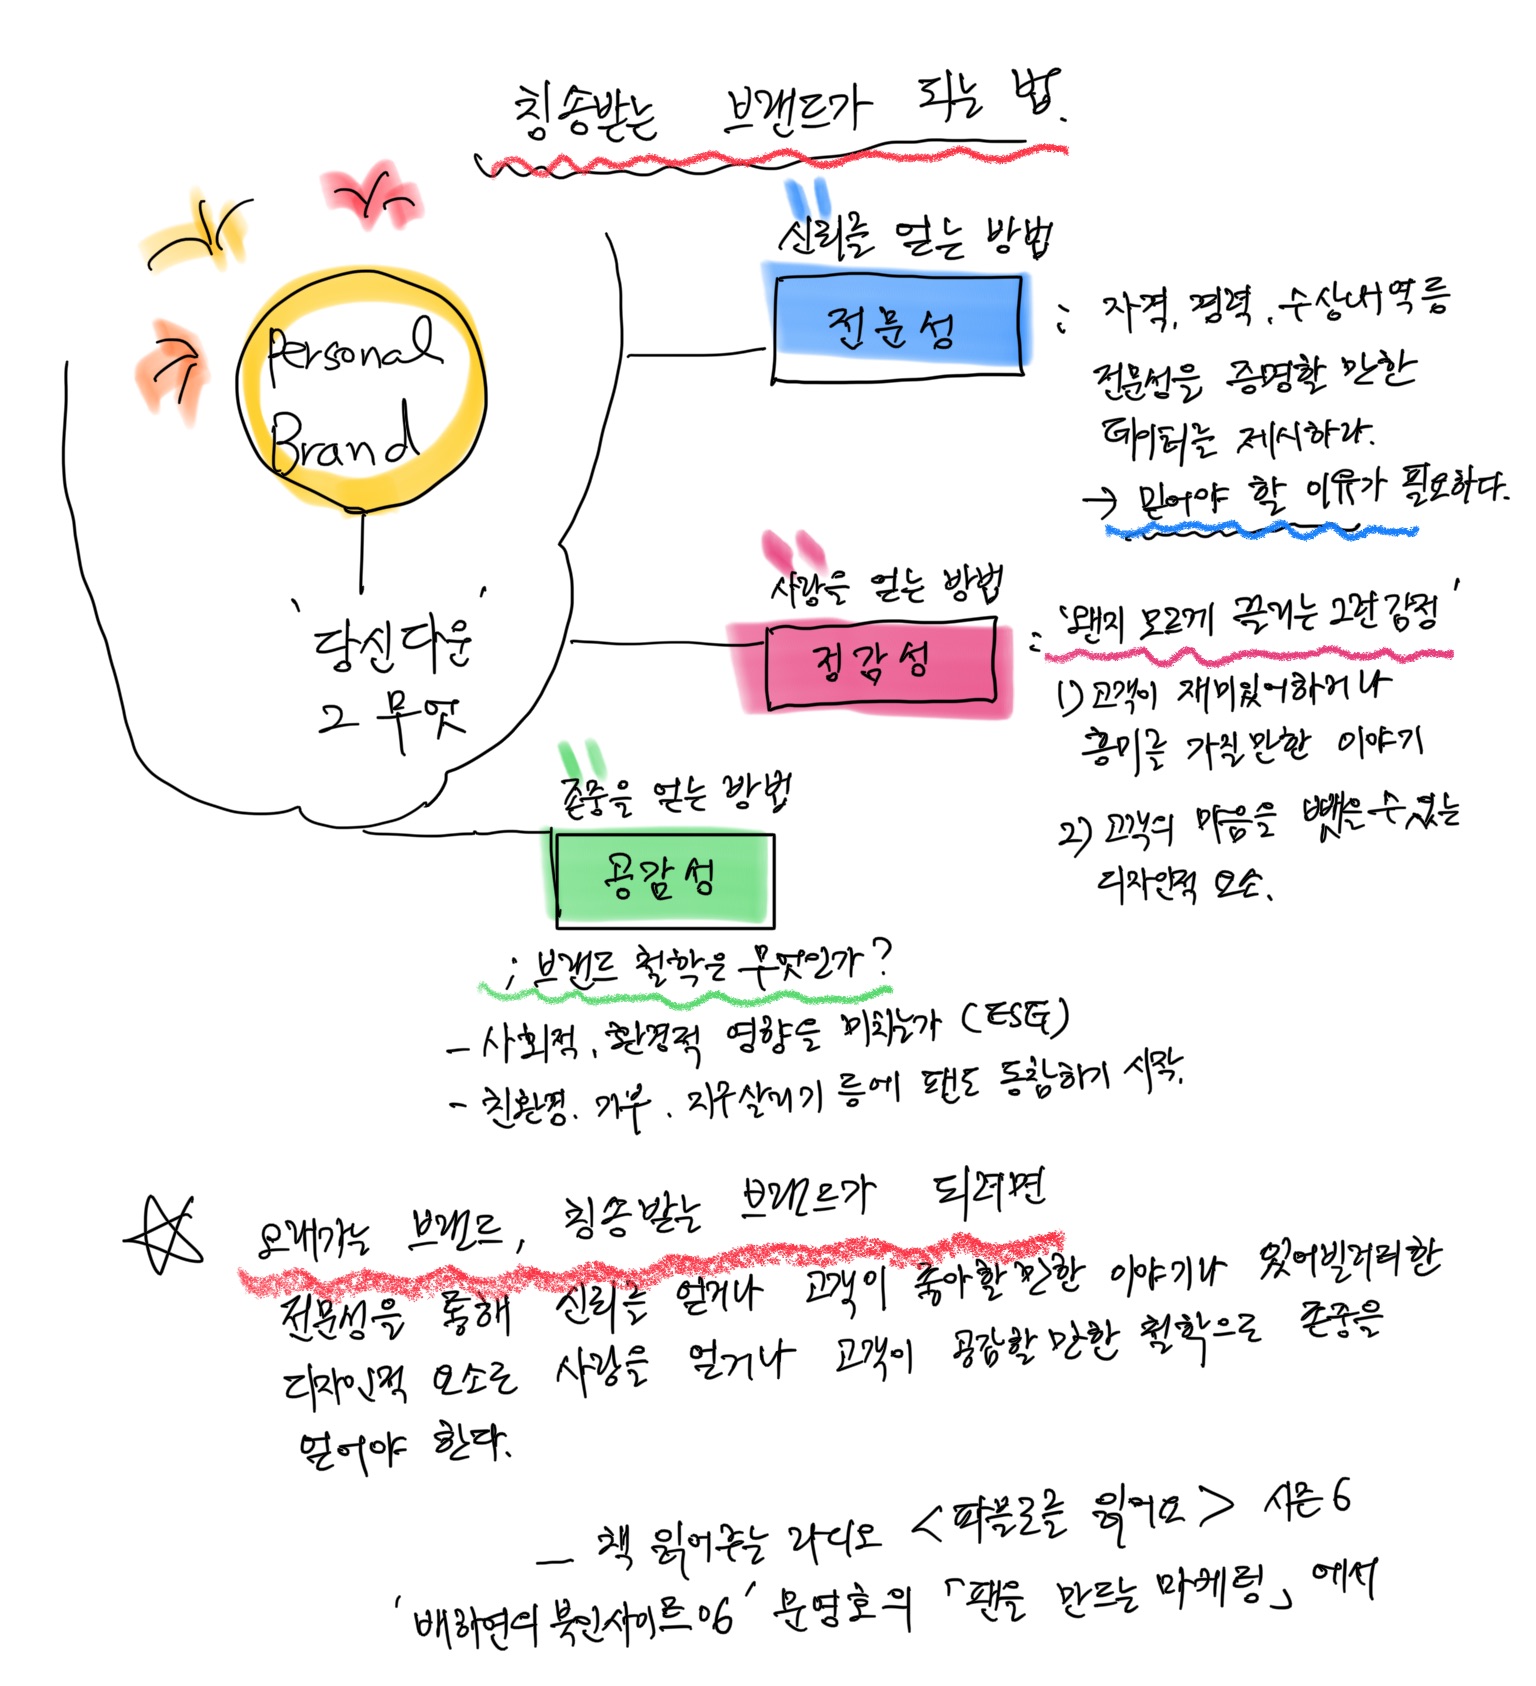 칭송받는 브랜드가 되는 법.
Personal
Brand
'당신다운'
그 무엇
신뢰를 얻는 방법
전문성
: 자격, 경력, 수상내역등
전문성을 증명할 만한
데이터를 제시하라.
→ 믿어야 할 이유가 필요하다.
사랑을 얻는 방법
정감성
: '왠지 모르게 끌리는 그런 감정'
1) 고객이 재미있어하거나
흥미를 가질만한 이야기
2) 고객의 마음을 뺏을수있는
디자인적 요소.
존중을 얻는 방법
공감성
; 브랜드 철학은 무엇인가?
- 사회적, 환경적 영향을 미치는가 (ESG)
- 친환경, 기부, 지구살리기 등에 팬도 동참하기 시작.
☆ 오래가는 브랜드, 칭송받는 브랜드가 되려면
전문성을 통해 신뢰를 얻거나 고객이 좋아할만한 이야기나 있어빌리티한
디자인적 요소로 사랑을 얻거나 고객이 공감할만한 철학으로 존중을
얻어야 한다.
- 책 읽어주는 라디오 <파블로를 읽어요> 시즌6
'배하연의 북인사이트06' 문영호의 「팬을 만드는 마케팅」에서